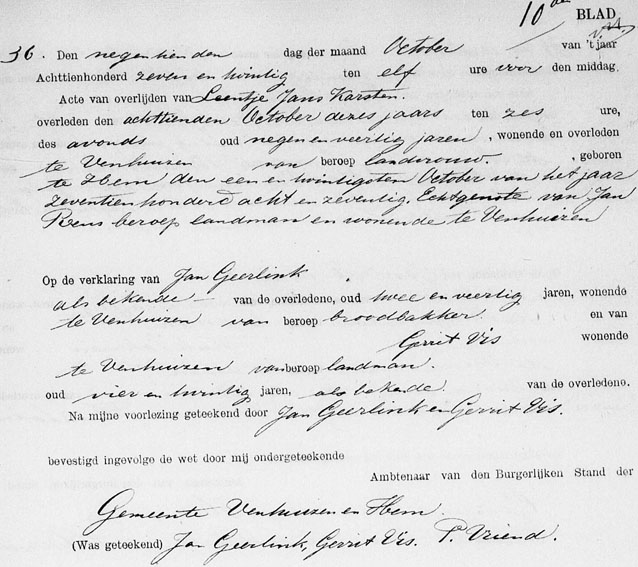 10de BLAD
36. Den negentienden dag der maand October van 't jaar
Achttienhonderd zeven en twintig ten elf ure voor den middag.
Acte van overlijden van Leentje Jans Karsten.
overleden den achttienden October dezes jaars ten zes ure,
des avonds oud negen en veertig jaren, wonende en overleden
te Venhuizen van beroep landvrouw. , geboren
te Hem den een en twintigsten October van het jaar
zeventienhonderd acht en zeventig. Echtgenote van Jan
Reus beroep landman en wonende te Venhuizen
Op de verklaring van Jan Geerlink
als bekende – van de overledene, oud twee en veertig jaren, wonende
te Venhuizen van beroep broodbakker. en van
Gerrit Vis wonende
te Venhuizen van beroep landman.
oud vier en twintig jaren, als bekende van de overledene.
Na mijne voorlezing geteekend door Jan Geerlink en Gerrit Vis.
bevestigd ingevolge de wet door mij ondergeteekende
Ambtenaar van den Burgerlijken Stand der
Gemeente Venhuizen en Hem.
(Was geteekend) Jan Geerlink, Gerrit Vis. P. Vriend.